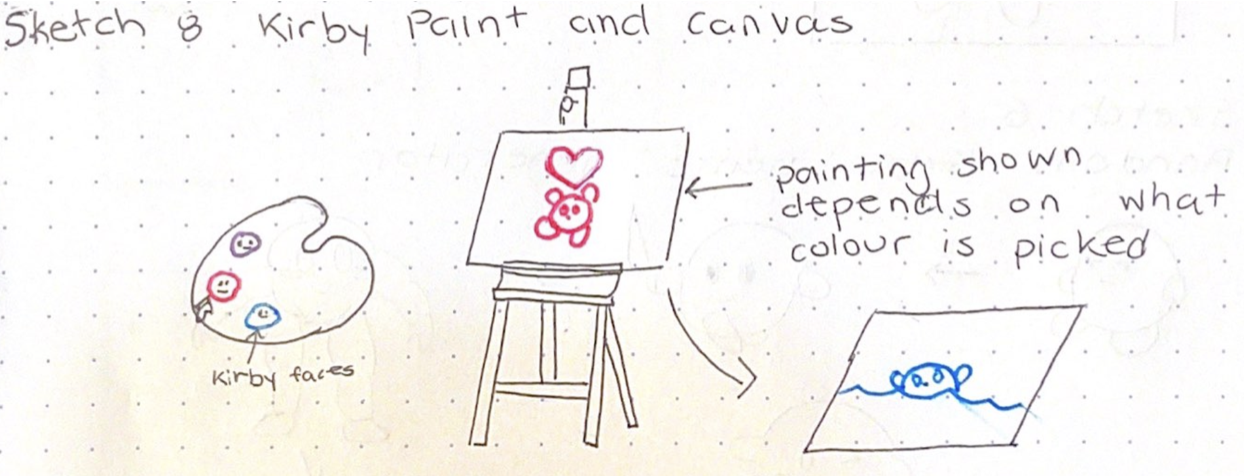 Sketch 8 Kirby Paint and Canvas
painting shown
depends on what
colour is picked
Kirby faces